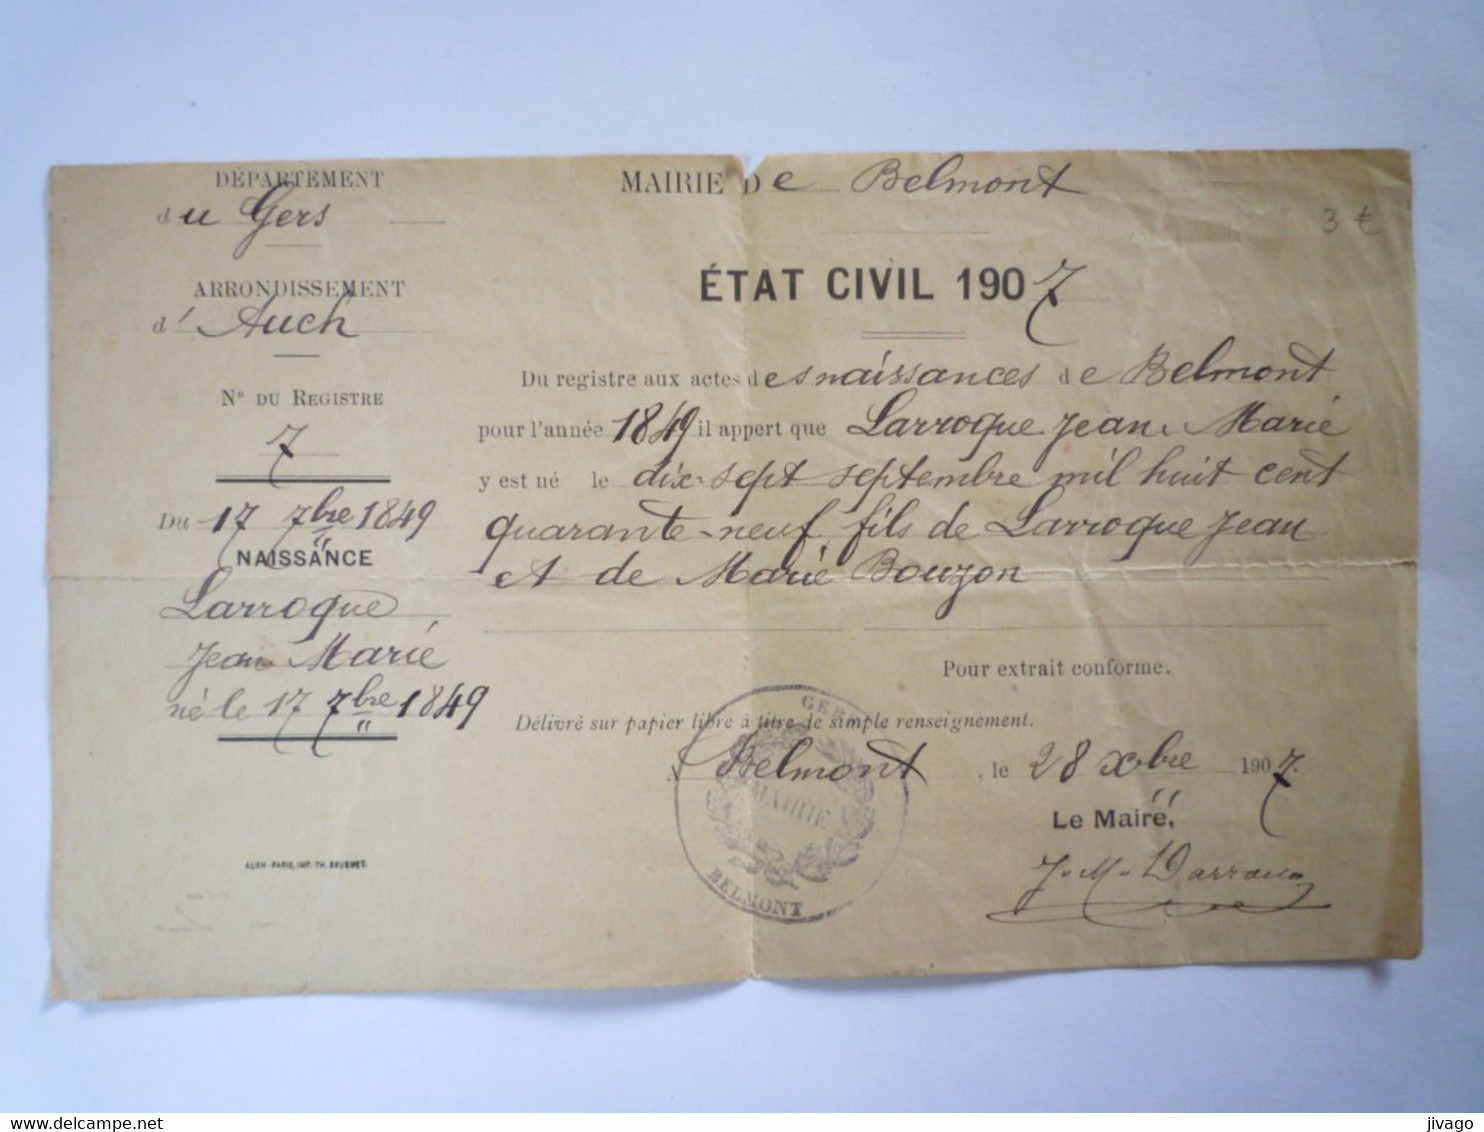 DÉPARTEMENT
du Gers
ARRONDISSEMENT
d' Auch
N° DU REGISTRE
7
Du 17 7bre 1849
NAISSANCE
Larroque
Jean Marie
né le 17 7bre 1849
AUCH-PARIS, IMP. TH. BOUQUET.
MAIRIE De Belmont
3 €
ÉTAT CIVIL 1907
Du registre aux actes des naissances de Belmont
pour l'année 1849 il appert que Larroque Jean Marie
y est né le dix-sept septembre mil huit cent
quarante-neuf fils de Larroque Jean
et de Marie Bouzon
Pour extrait conforme.
Délivré sur papier libre à titre de simple renseignement.
A Belmont, le 28 xbre 1907.
Le Maire,
J. M.
GERS
MAIRIE
BELMONT
www.delcampe.net
jivago